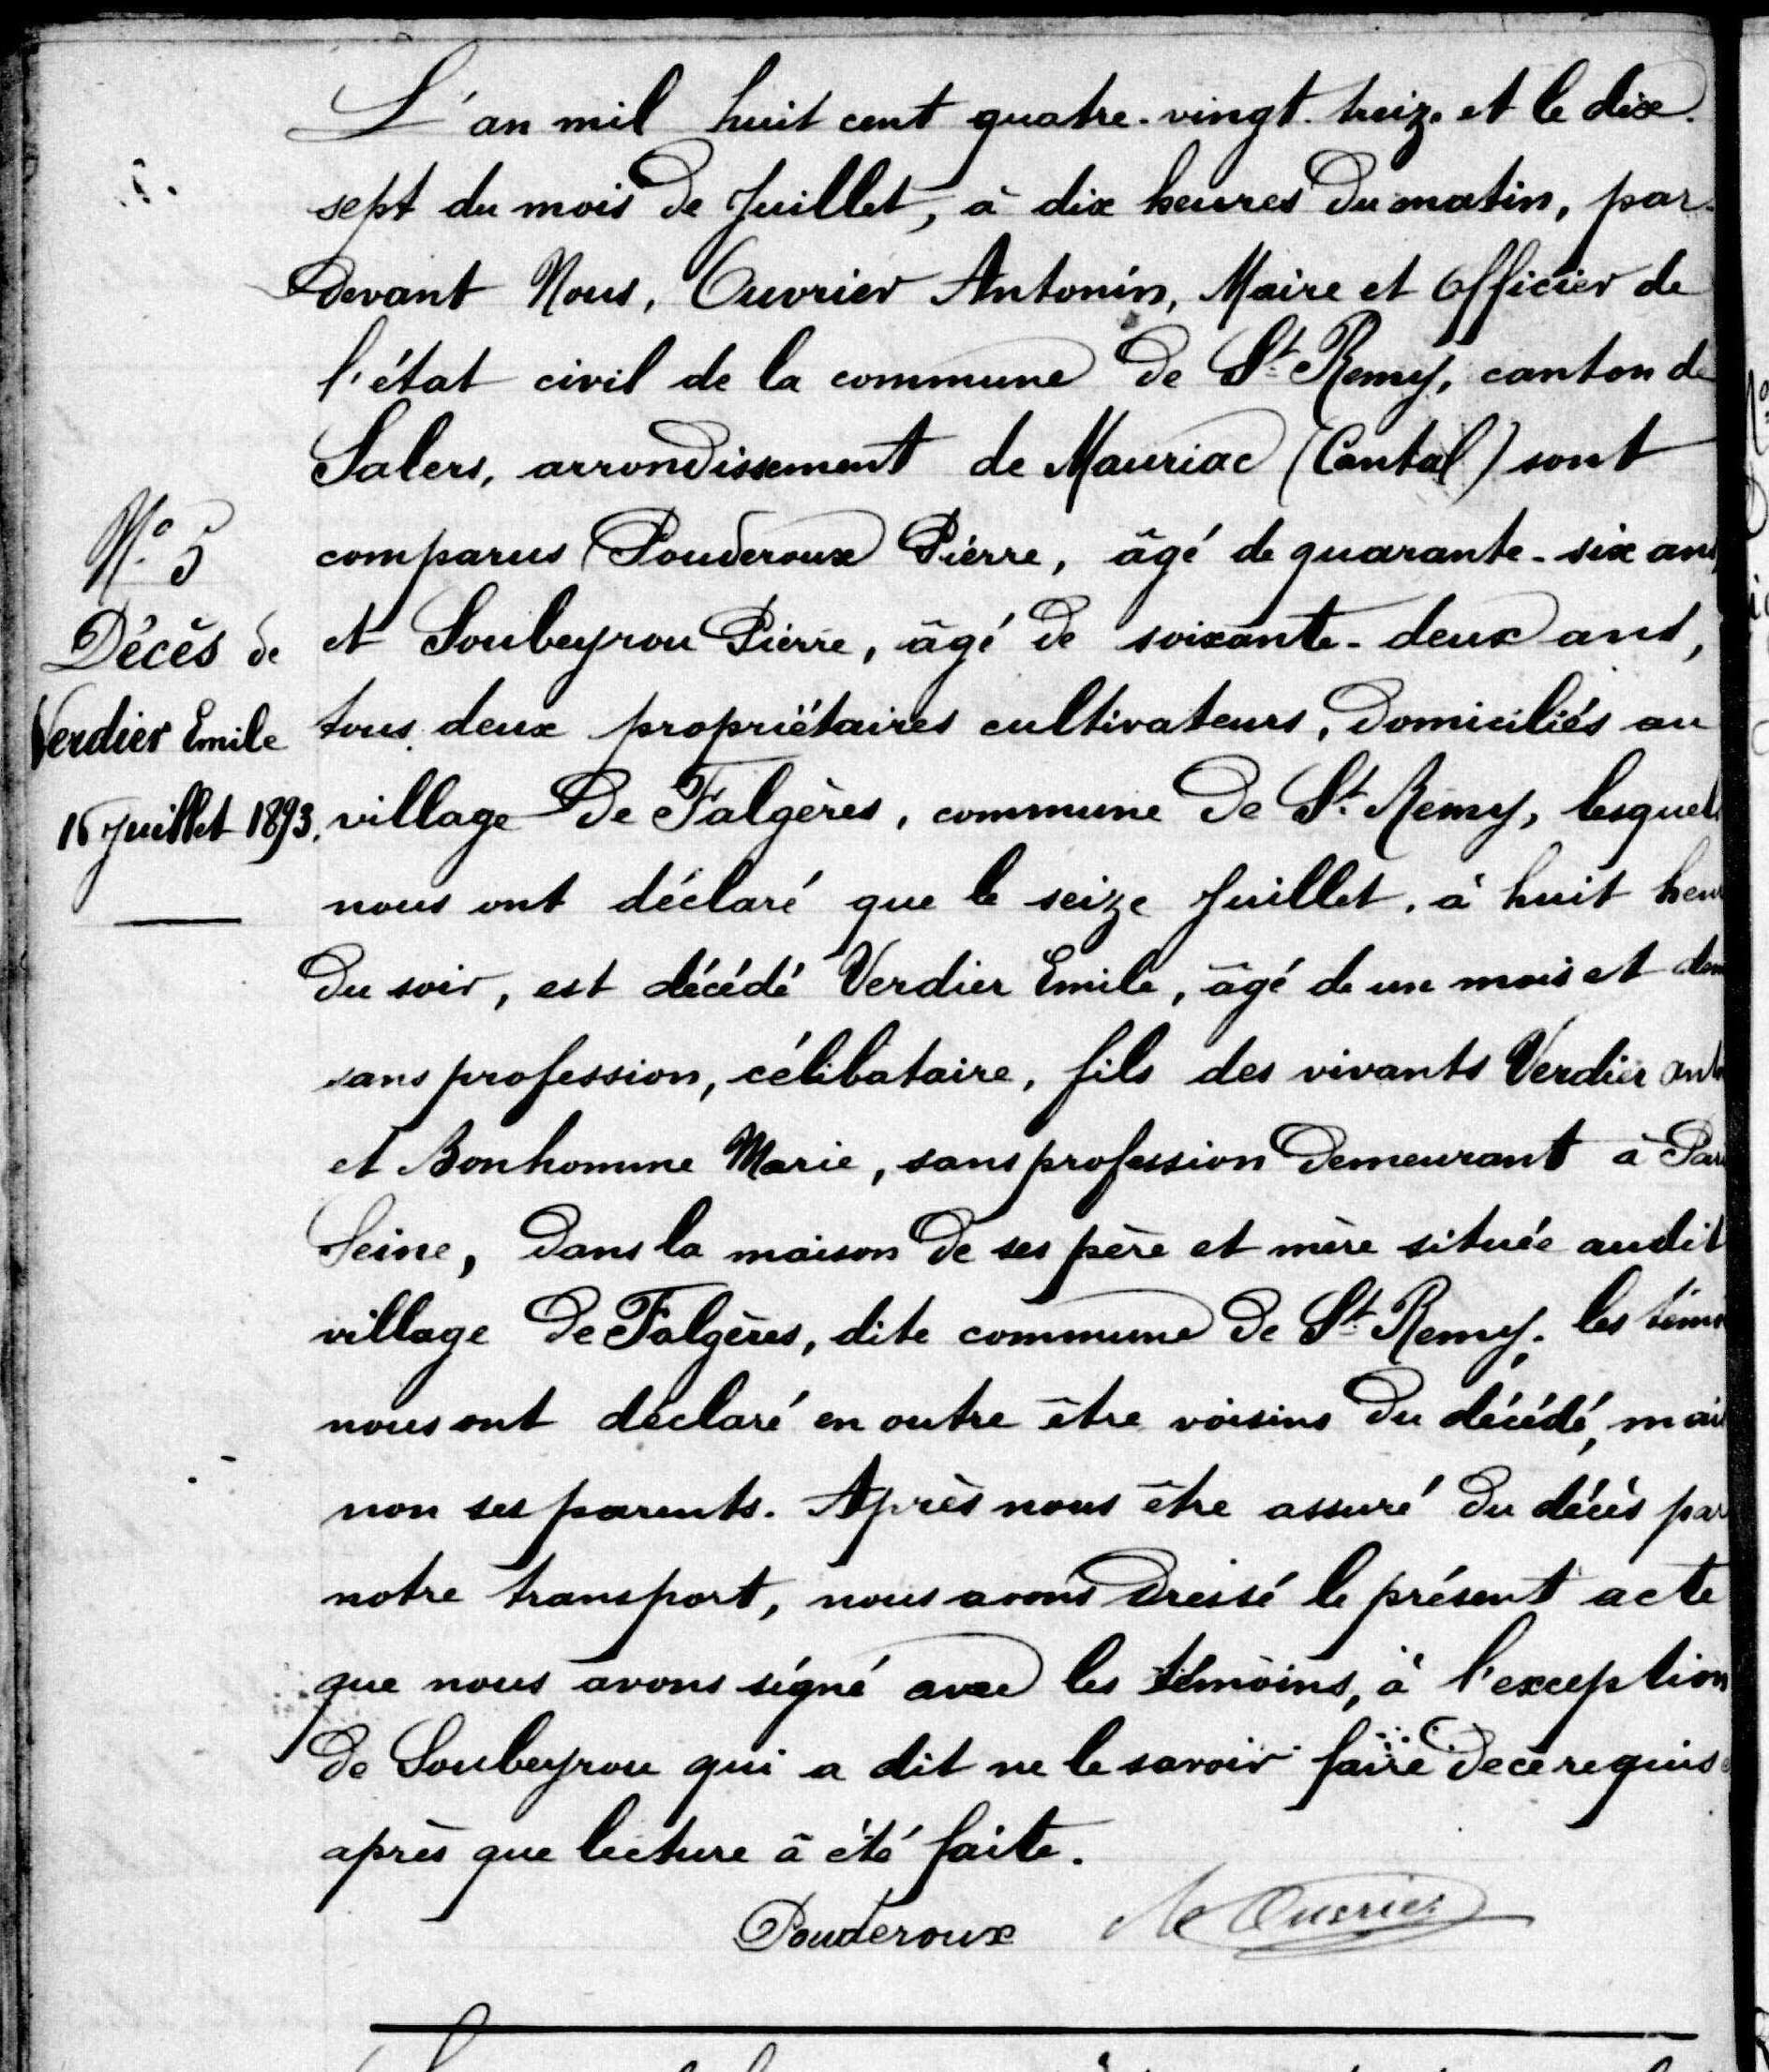 L'an mil huit cent quatre-vingt-treize et le dix-
sept du mois de Juillet, à dix heures du matin, par-
devant Nous, Ouvrier Antonin, Maire et Officier de
l'état civil de la commune de St Remy, canton de
Salers, arrondissement de Mauriac (Cantal) sont
comparus Pouderoux Pierre, âgé de quarante-six ans
et Soubeyrou Pierre, âgé de soixante-deux ans,
tous deux propriétaires cultivateurs, domiciliés au
village de Falgères, commune de St Remy, lesquels
nous ont déclaré que le seize Juillet, à huit heu
du soir, est décédé Verdier Emile, âgé de un mois et
sans profession, célibataire, fils des vivants Verdier ant
et Bonhomme Marie, sans profession demeurant à Par
Seine, dans la maison de ses père et mère située audit
village de Falgères, dite commune de St Remy. les témo
nous ont déclaré en outre être voisins du décédé, mais
non ses parents. Après nous être assuré du décès par
notre transport, nous avons dressé le présent acte
que nous avons signé avec les témoins, à l'exception
de Soubeyrou qui a dit ne le savoir faire de ce requis
après que lecture à été faite.
Pouderoux Ouvrier
No 5
Décès de
Verdier Emile
16 Juillet 1893.